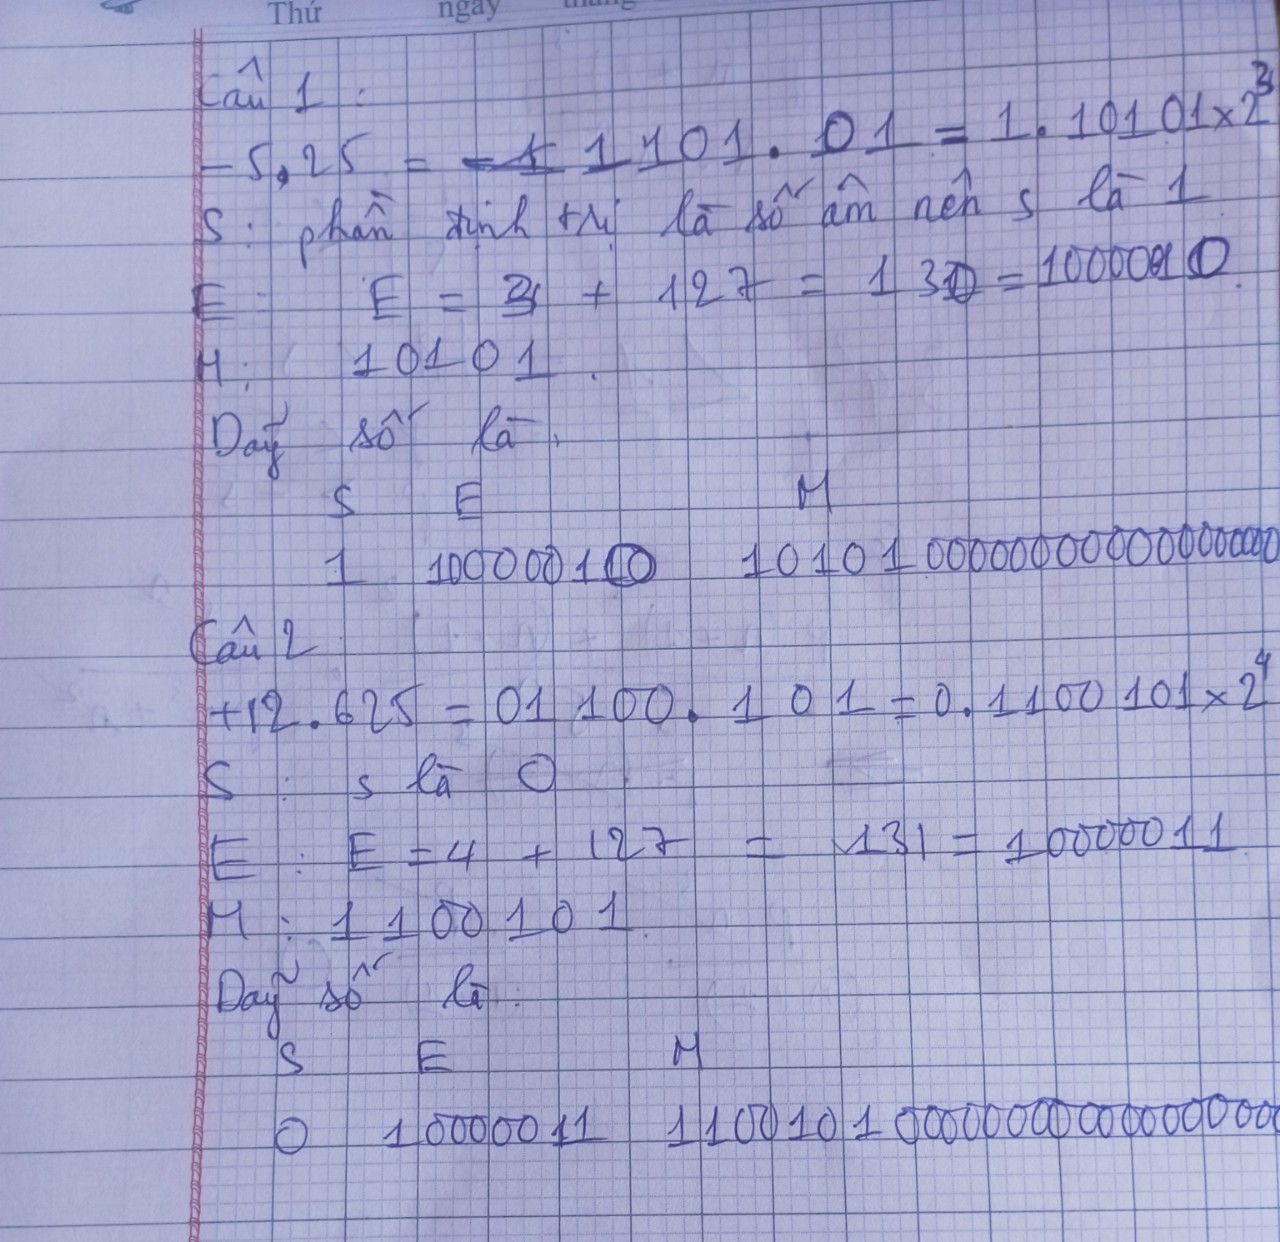 Thứ ngày tháng
Câu 1 :
-5,25 = 1101.01 = 1.10101×2³
S: phần định trị là số âm nên s là 1
E: E = 3 + 127 = 130 = 10000010.
M: 10101.
Dãy số là:
S E M
1 10000010 10101000000000000000000
Câu 2
+12.625 = 01100.101 = 0.1100101×2⁴
S : s là 0
E : E = 4 + 127 = 131 = 10000011
M : 1100101.
Dãy số là:
S E M
0 10000011 1100101000000000000000